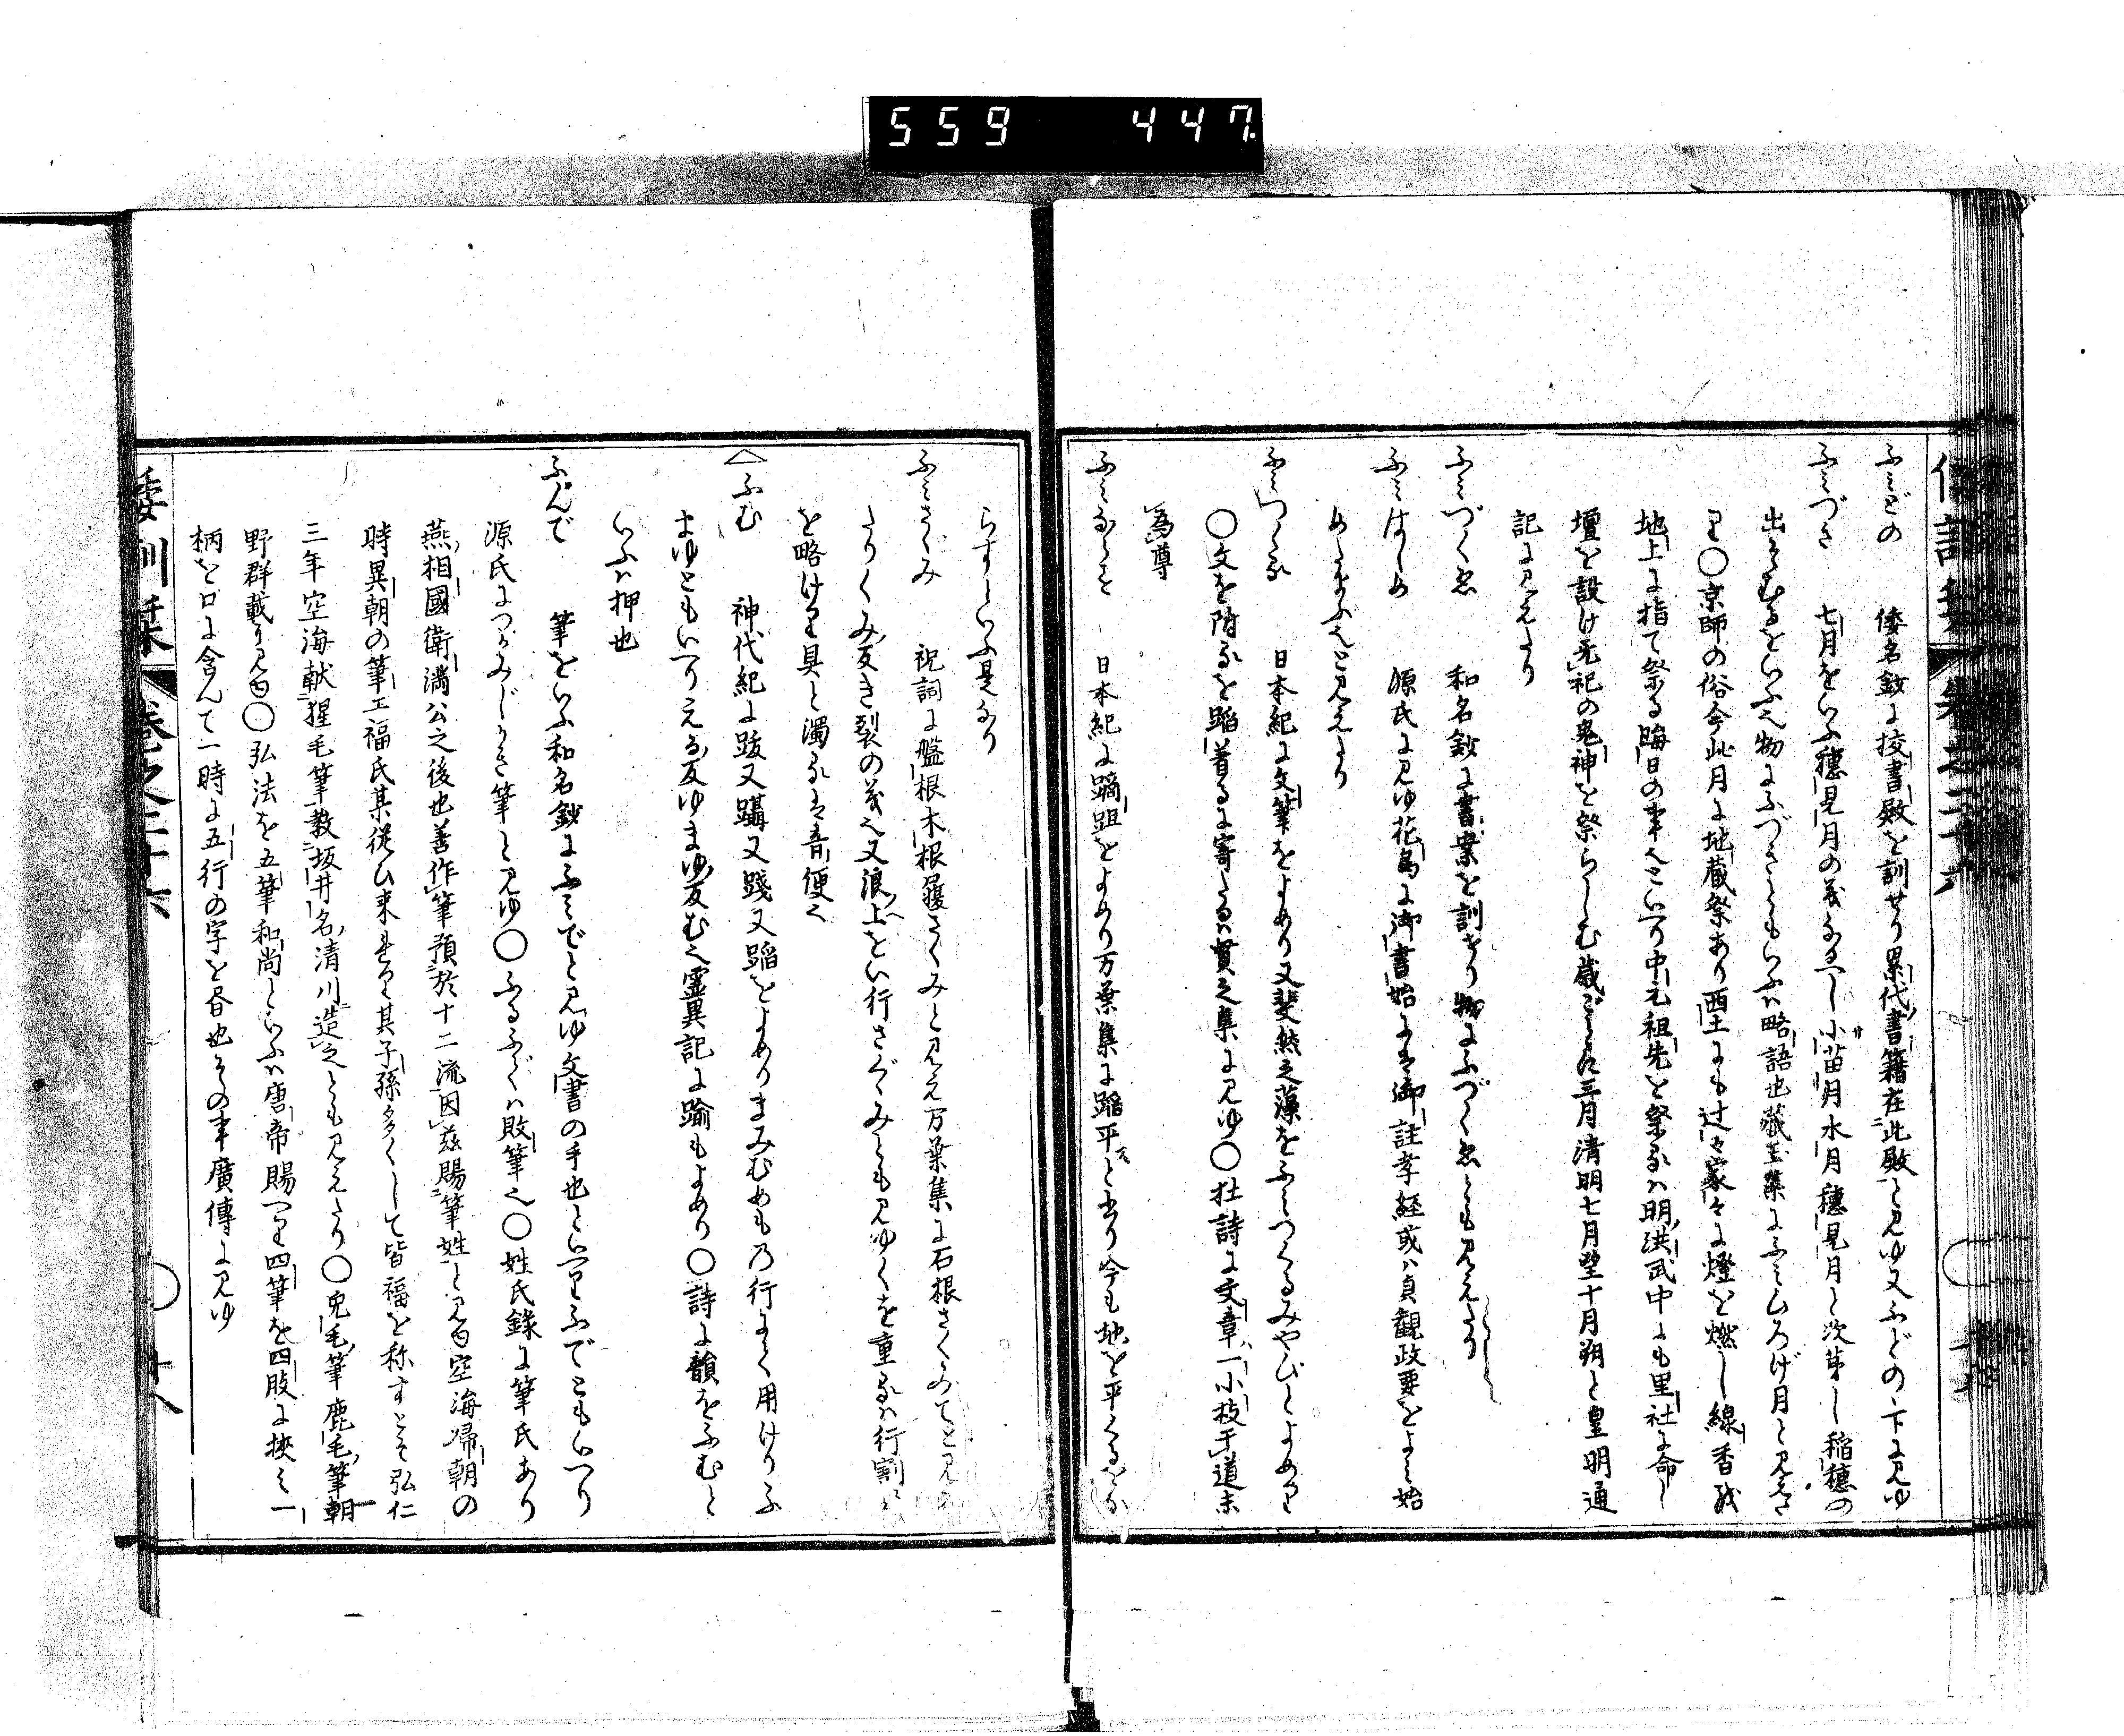 559 447.
ふみどの 倭名鈔に挍書殿を訓せり累代書籍在此殿と見ゆ又ふどの下に見ゆ
ふみづき 七月をいふ穗見月の義なるへし小苗月水月穗見月と次第し稲穗の
出そむるをいふ也物にふづきともいふハ略語也藏玉集にふみひろげ月と見え
り〇京師の俗今此月に地蔵祭あり西土にも辻々家々に燈を燃し線香を
地上に指て祭る晦日の事也といへり中元祖先を祭るハ明洪武中にも里社に命し
壇を設け无祀の鬼神を祭らしむ歳ごとに三月清明七月望十月朔と皇明通
記に見えたり
ふみづくゑ 和名鈔に書案を訓せり物にふづくゑとも見えたり
ふみはしめ 源氏に見ゆ花鳥に御書始には御註孝経或ハ貞観政要をよみ始
めたまふ也と見えたり
ふみつくる 日本紀に文筆をよめり又斐然之藻をふみつくるみやびとよめり
〇文を附るを蹈着るに寄たるハ貫之集に見ゆ〇杜詩に文章一小技于道未
為尊
ふみならす 日本紀に蹢跙をよめり万葉集に蹈平と書り今も地を平くるをな
らすといふ是なり
ふみさくみ 祝詞に磐根木根履さくみと見え万葉集に石根さくみてと見え
たりくみ反き裂の義也又浪上をい行さぐくみとも見ゆくを重るハ行割
を略けり具と濁るは音便也
ふむ 神代紀に跋又躡又踐又蹈をよめりまみむめも乃行によく用けりふ
まゆともいへりえな反ゆまゆ反む也霊異記に踰もよめり〇詩に韻をふむと
いふハ押也
ふんで 筆をいふ和名鈔にふみでと見ゆ文書の手也といへりふでともいへり
源氏につかみじかき筆と見ゆ〇ふるふでハ敗筆也〇姓氏錄に筆氏あり
燕相國衛満公之後也善作筆預於十二流因茲賜筆姓と見ゆ空海帰朝の
時異朝の筆工福氏某従ひ来れり其子孫多くして皆福を称すとそ弘仁
三年空海献狸毛筆教坂井名清川造之とも見えたり〇兎毛筆鹿毛筆朝
野群載に見ゆ〇弘法を五筆和尚といふハ唐帝賜へり四筆を四肢に挾み一
柄を口に含んて一時に五行の字を昼也その事廣傳に見ゆ
倭訓栞 巻之二十六 廿八